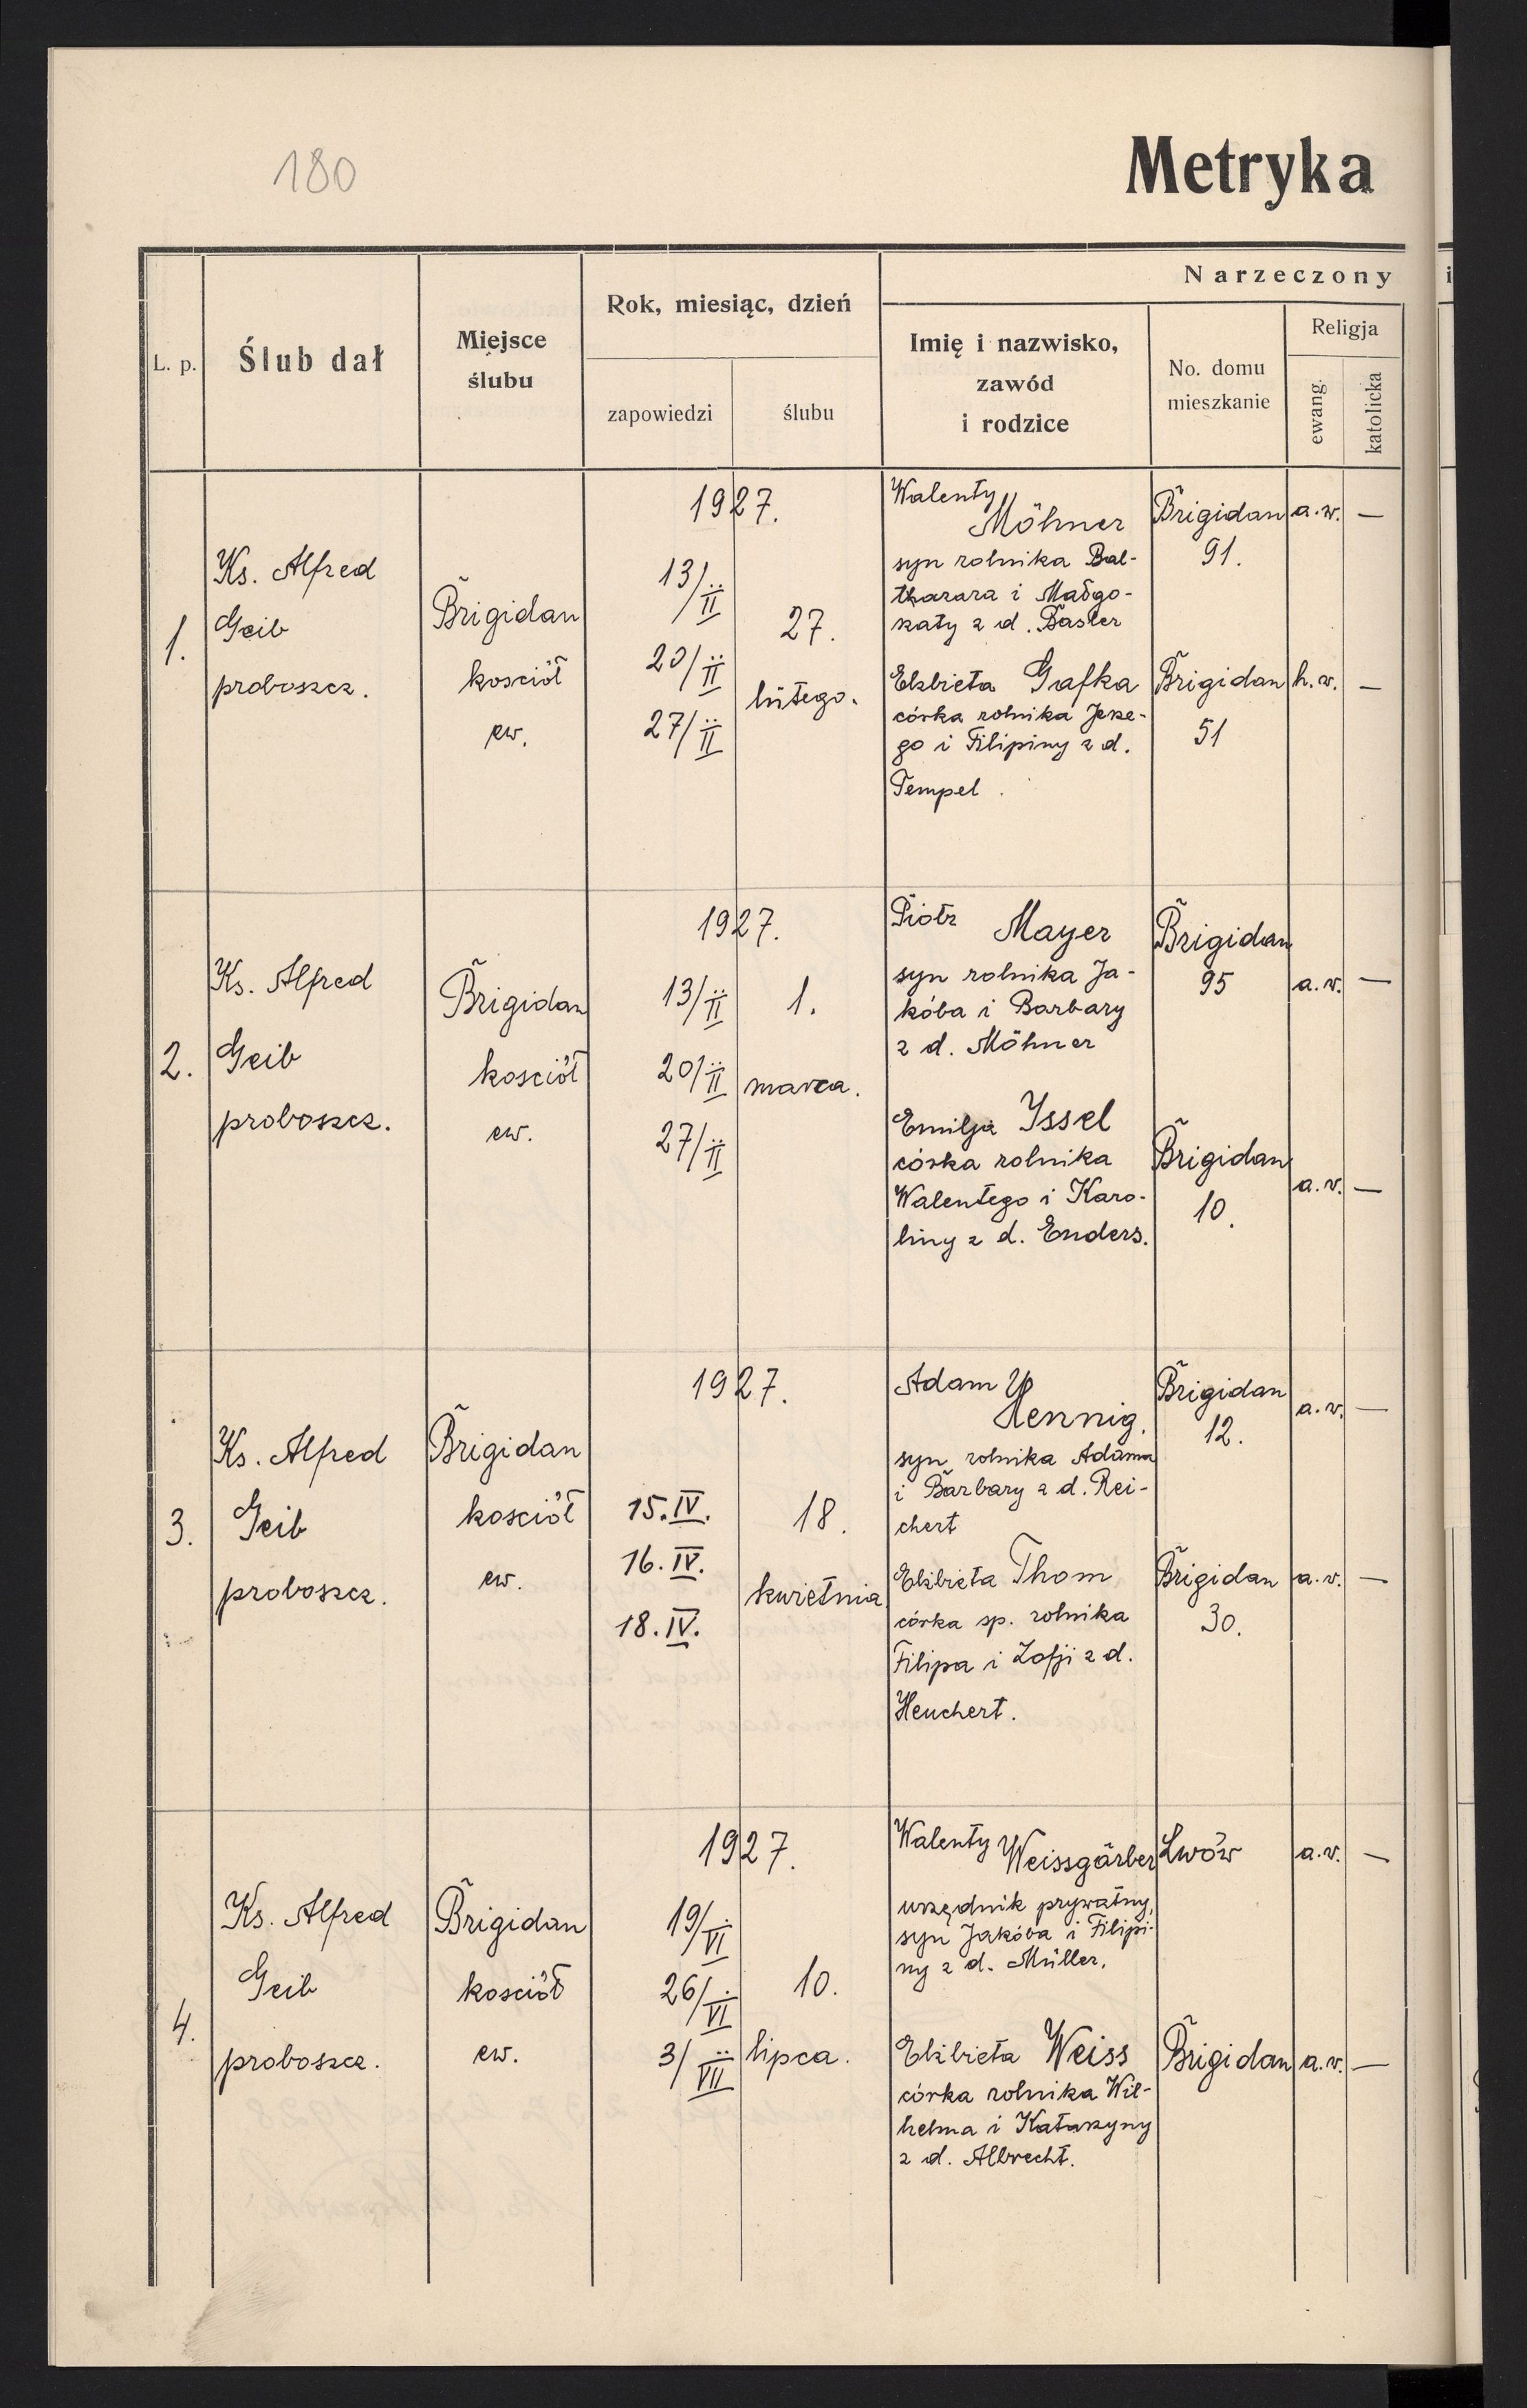 180
Metryka
L. p.
Ślub dał
Miejsce
ślubu
Rok, miesiąc, dzień
zapowiedzi
ślubu
Narzeczony
i
Imię i nazwisko,
zawód
i rodzice
No. domu
mieszkanie
Religja
ewang.
katolicka
1.
Ks. Alfred
Geib
proboszcz.
Brigidau
kosciół
ew.
1927.
13/II
20/II
27/II
27.
lutego.
Walenty
Möhner
syn rolnika Bal-
thazara i Małgo-
rzaty z d. Basler
Brigidau
91.
a.w. —
Elzbieta Gafka
córka rolnika Jerze-
go i Filipiny z d.
Tempel.
Brigidau
51
h.w. —
2.
Ks. Alfred
Geib
proboszcz.
Brigidau
kosciół
ew.
1927.
13/II
20/II
27/II
1.
marca.
Piotr Mayer
syn rolnika Ja-
kóba i Barbary
z d. Möhner
Brigidau
95
a.w. —
Emilja Issel
córka rolnika
Walentego i Karo-
liny z d. Enders.
Brigidau
10.
a.w. —
3.
Ks. Alfred
Geib
proboszcz.
Brigidau
kosciół
ew.
1927.
15.IV.
16.IV.
18.IV.
18.
kwietnia
Adam
Hennig,
syn rolnika Adama
i Barbary z d. Rei-
chert
Brigidau
12.
a.w. —
Elżbieta Thom
córka sp. rolnika
Filipa i Zofji z d.
Heuchert.
Brigidau
30.
a.w. —
4.
Ks. Alfred
Geib
proboszcz.
Brigidau
kosciół
ew.
1927.
19/VI
26/VI
3/VII
10.
lipca.
Walenty
Weissgärber
urzędnik prywatny,
syn Jakóba i Filipi-
ny z d. Müller.
Lwów
a.w. —
Elżbieta Weiss
córka rolnika Wil-
helma i Katarzyny
z d. Albrecht.
Brigidau
a.w. —